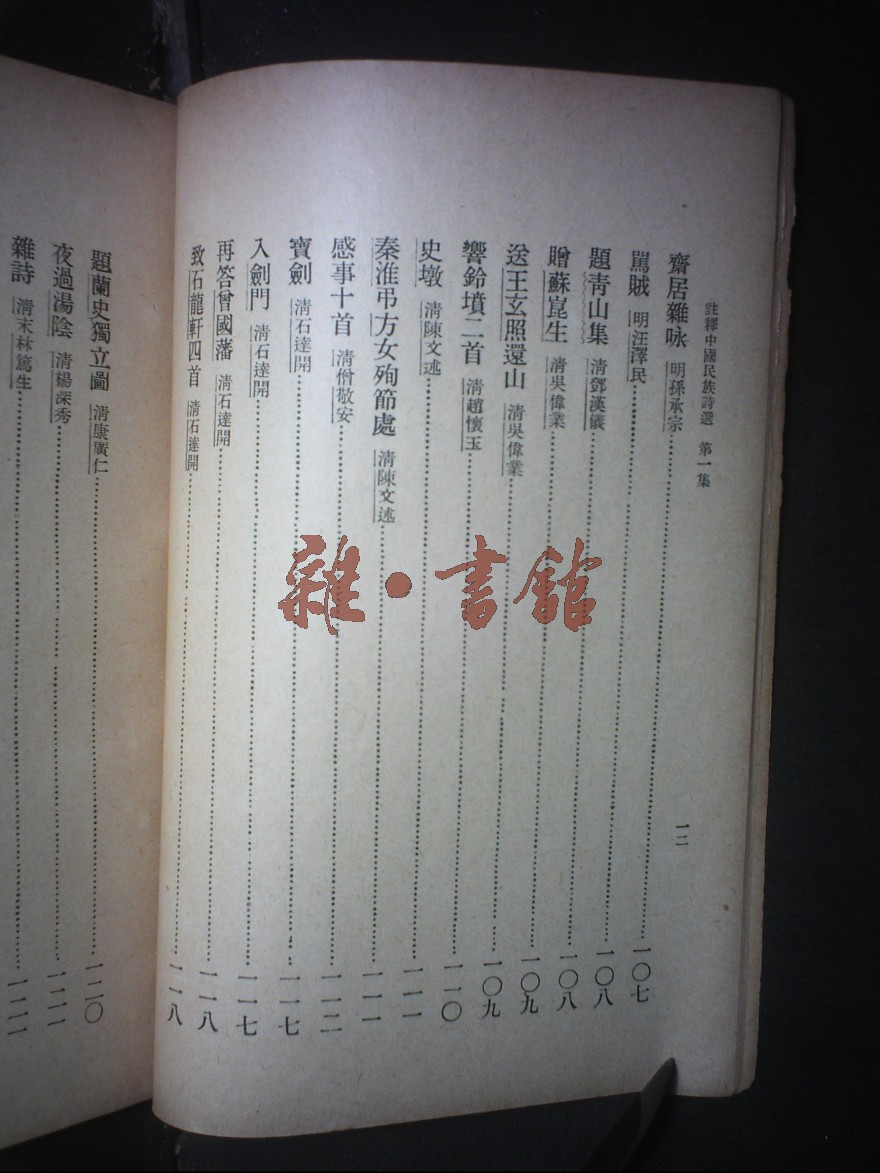 註釋中國民族詩選 第一集
一二
齋居雜咏 明孫承宗……一〇七
罵賊 明汪澤民……一〇八
題青山集 清鄧漢儀……一〇八
贈蘇崑生 清吳偉業……一〇九
送王玄照還山 清吳偉業……一〇九
響鈴墳二首 清趙懷玉……一一〇
史墩 清陳文述……一一一
秦淮弔方女殉節處 清陳文述……一一一
感事十首 清僧敬安……一一二
寶劍 清石達開……一一七
入劍門 清石達開……一一七
再答曾國藩 清石達開……一一八
致石龍軒四首 清石達開……一一八
題蘭史獨立圖 清康廣仁……一二〇
夜過湯陰 清楊深秀……一二一
雜詩 清末林篤生……
雜·書館